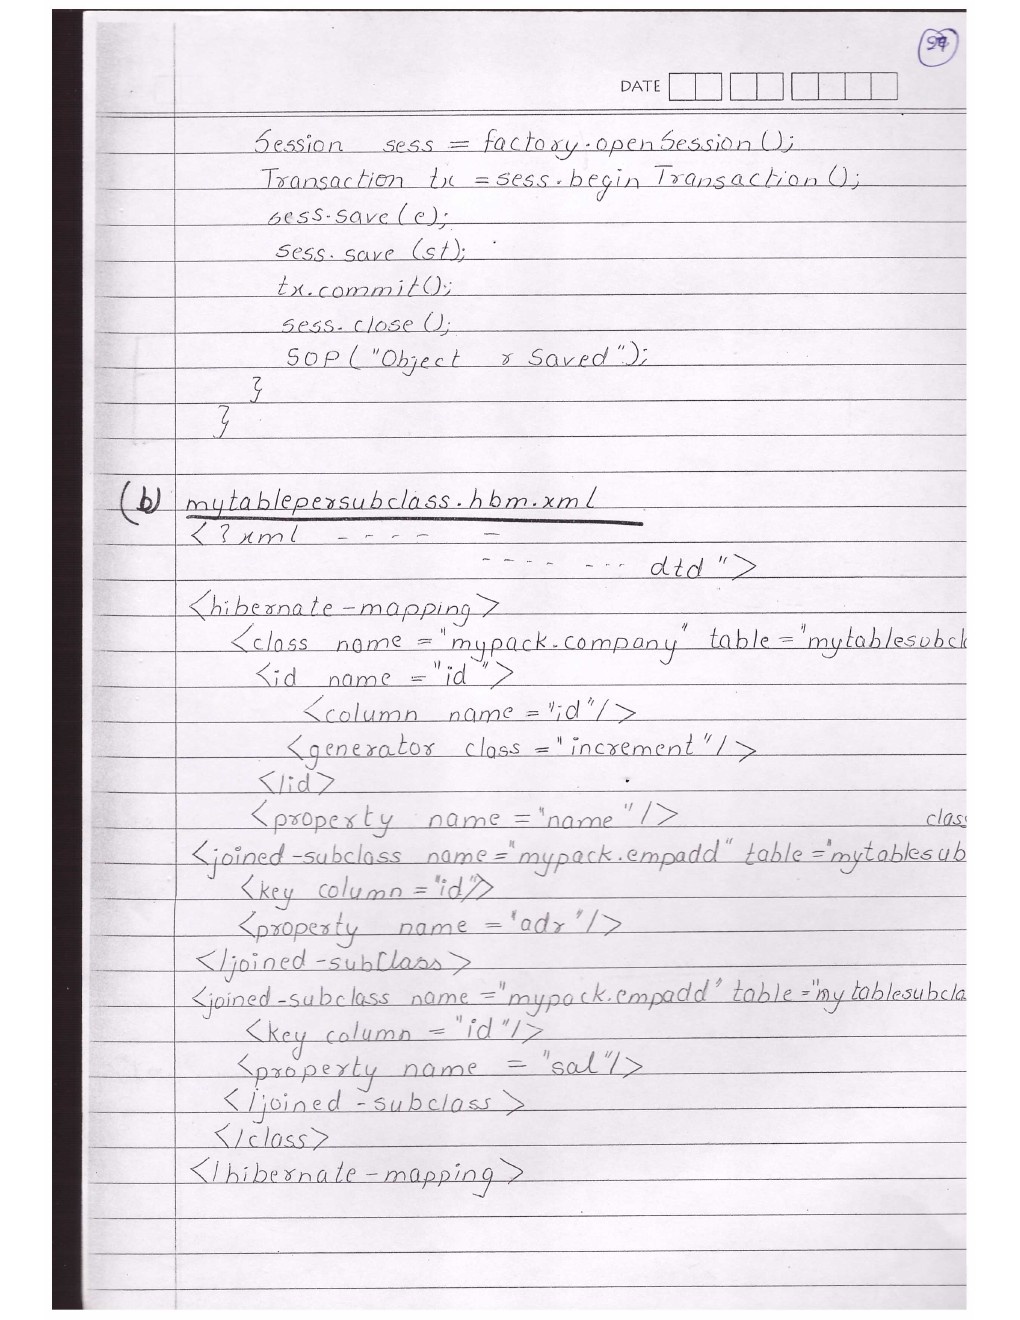 DATE
Session sess = factory.openSession();
Transaction tx = sess.begin Transaction();
sess.save(e);
sess.save(st);
tx.commit();
sess.close();
SOP("Object r Saved");
}
}
(b) mytablepersubclass.hbm.xml
<?xml - - - - -
- - - - - - - dtd">
<hibernate-mapping>
<class name="mypack.company" table="mytablesubcl
<id name="id">
<column name="id"/>
<generator class="increment"/>
</id>
<property name="name"/>
class
<joined-subclass name="mypack.empadd" table="mytablesub
<key column="id"/>
<property name="adr"/>
</joined-subClass>
<joined-subclass name="mypack.empadd" table="mytablesubcla
<key column="id"/>
<property name="sal"/>
</joined-subclass>
</class>
</hibernate-mapping>